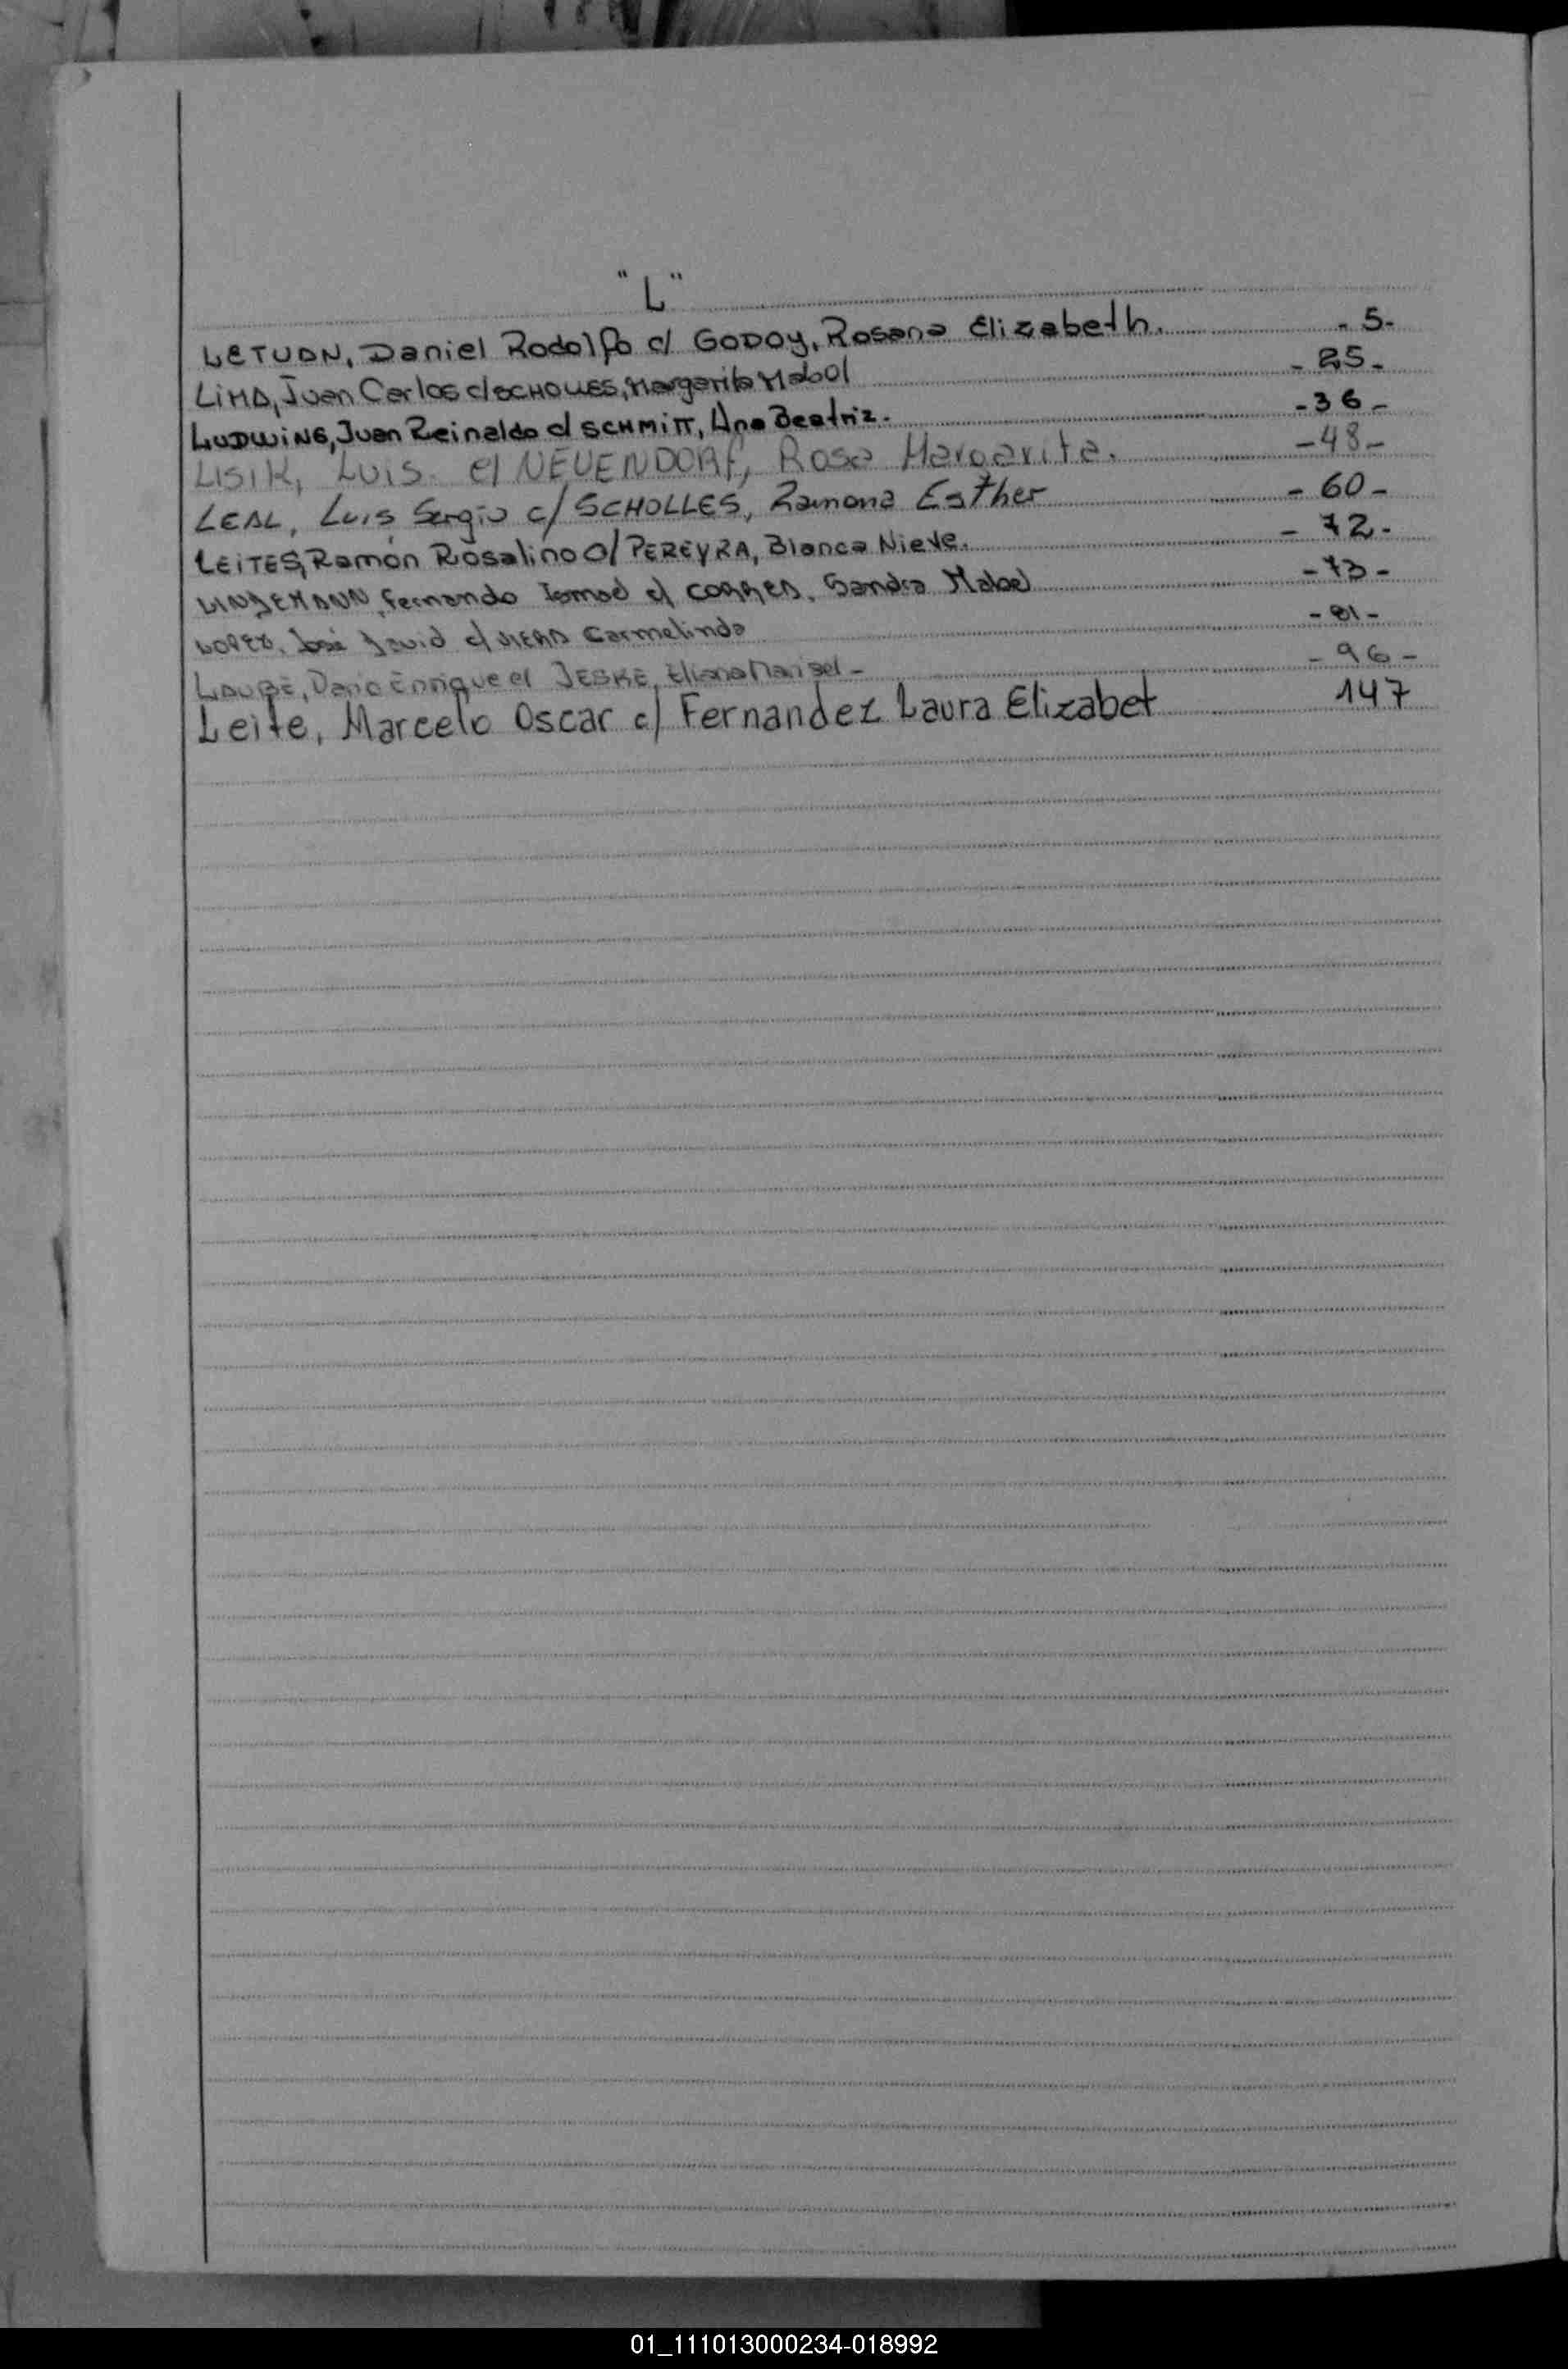 "L"
LETUAN, Daniel Rodolfo c/ GODOY, Rosana Elizabeth. - 5-
LIMA, Juan Carlos c/ SCHOLLES, Margarita Mabel - 25-
LUDWING, Juan Reinaldo c/ SCHMITT, Ana Beatriz. -36-
LISIK, LUIS. c/ NEUENDORF, Rosa Margarita. -48-
LEAL, Luis Sergio c/ SCHOLLES, Ramona Esther - 60-
LEITES, Ramón Rosalino c/ PEREYRA, Blanca Nieve. - 72-
LINDEMANN, Fernando c/ CORREA, Sandra Mabel -73-
LOPEZ, José David c/ VIERA Carmelinda -81-
LAUBE, Dario Enrique c/ JESKE, Eliana Marisel- -96-
Leite, Marcelo Oscar c/ Fernandez Laura Elizabet 147
01_111013000234-018992